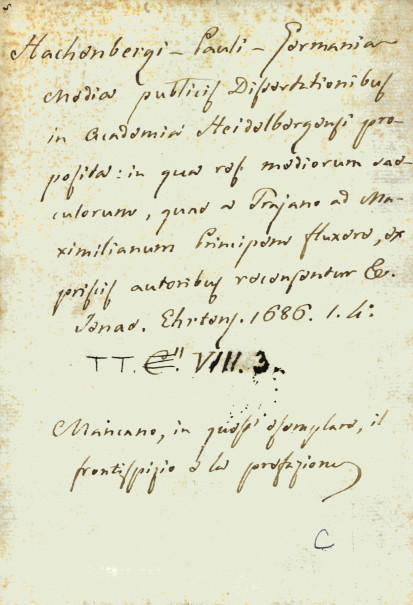 Hachenbergi - Pauli - Germania
Media publicis Dissertationibus
in Academia Heidelbergensi pro-
posita: in qua res mediorum sae-
culorum, quae a Trajano ad Ma-
ximilianum Principem fluxere, ex
priscis autoribus recensentur &c.
Jenae. Ehrtens. 1686. 1. 4:
TT. VIII. 3.
Mancano, in quest' esemplare, il
frontispizio e la prefazione
C